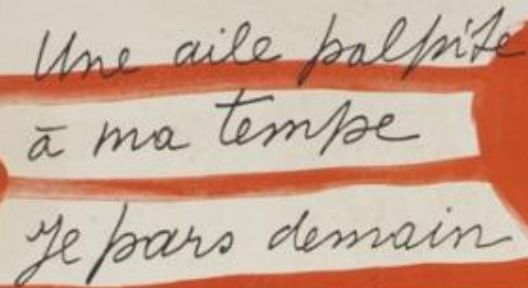 Une aile palpite
à ma tempe
Je pars demain